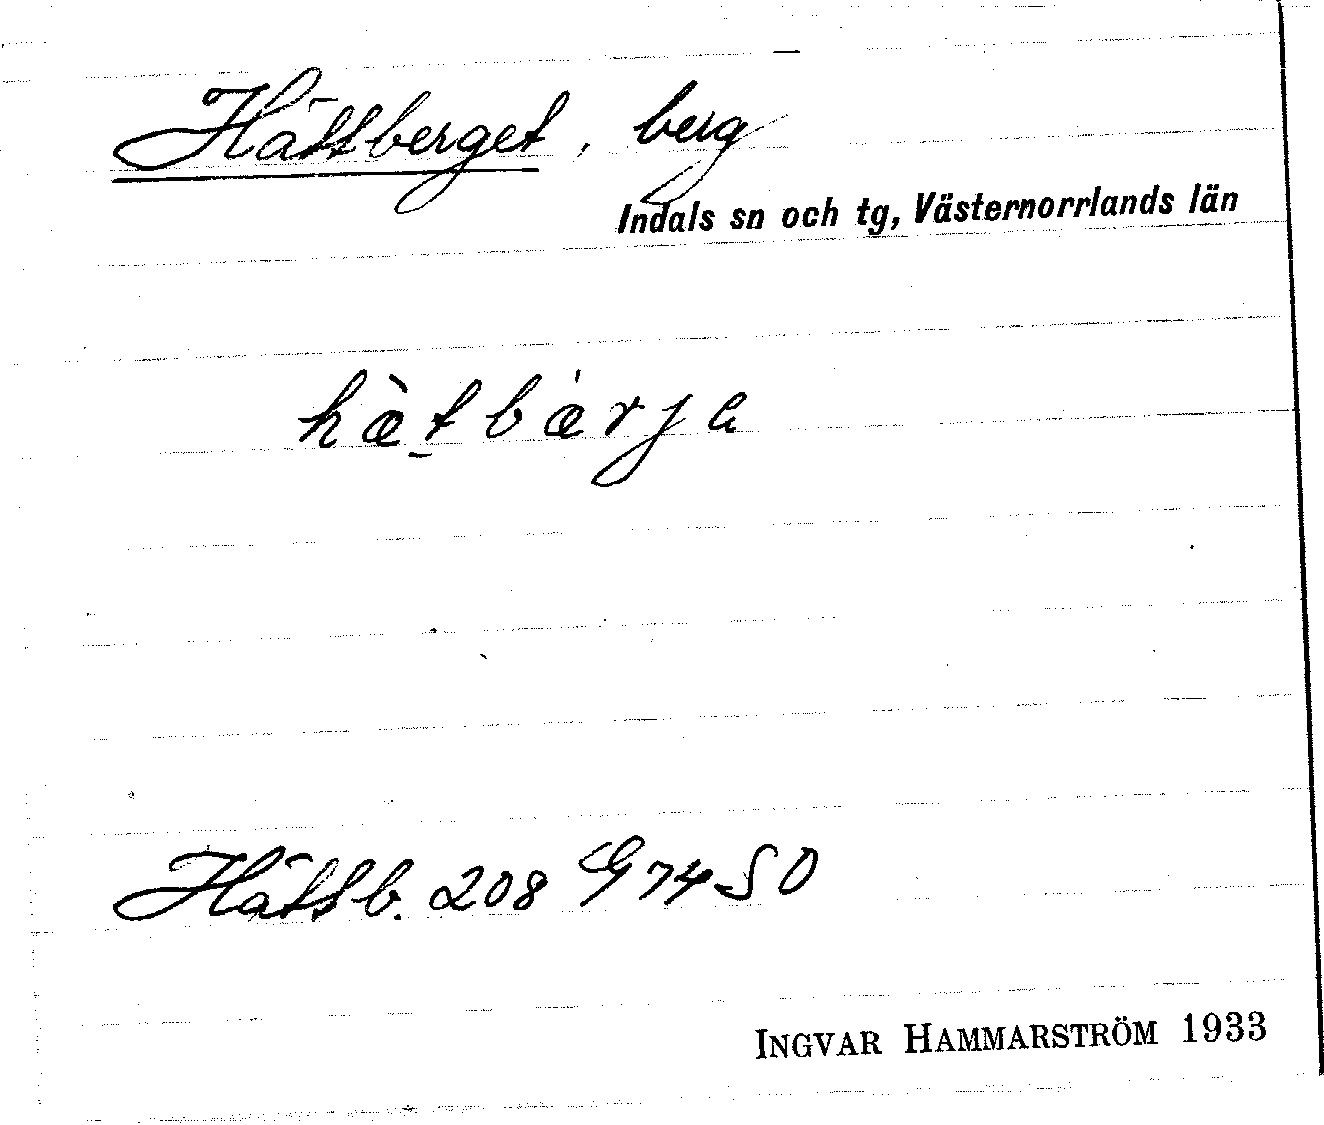 Hättberget, berg
Indals sn och tg, Västernorrlands län
hæ̀t̠bæ̍rja
Hättb. 208 G 74 SO
INGVAR HAMMARSTRÖM 1933